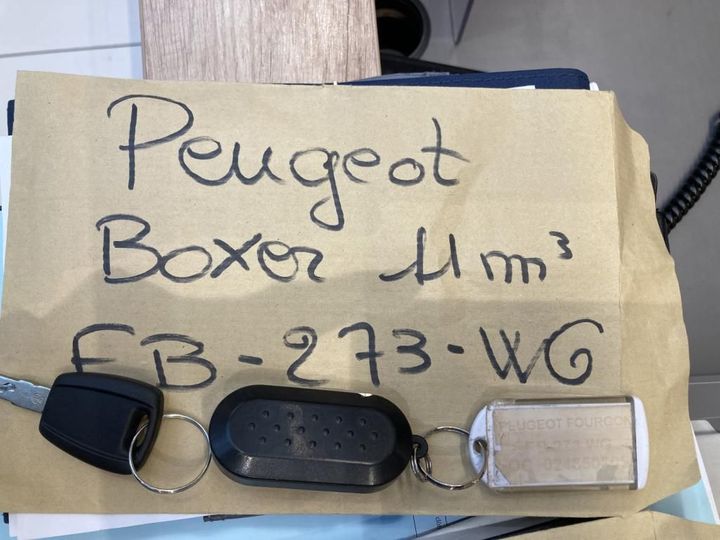 Peugeot
Boxer 11 m³
FB-273-WG
PEUGEOT FOURGON